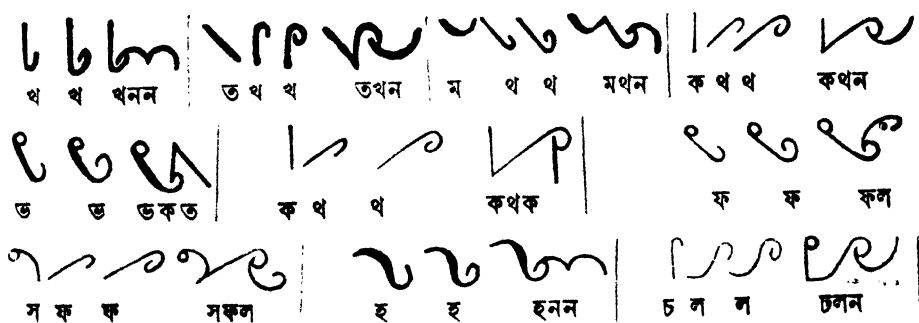 থ থ থনন ত থ থ তখন ম থ থ মথন ক থ থ কথন
ভ ভ ভকত ক থ থ কথক ফ ফ ফল
স ফ ফ সফল হ হ হনন চ ল ল চলন